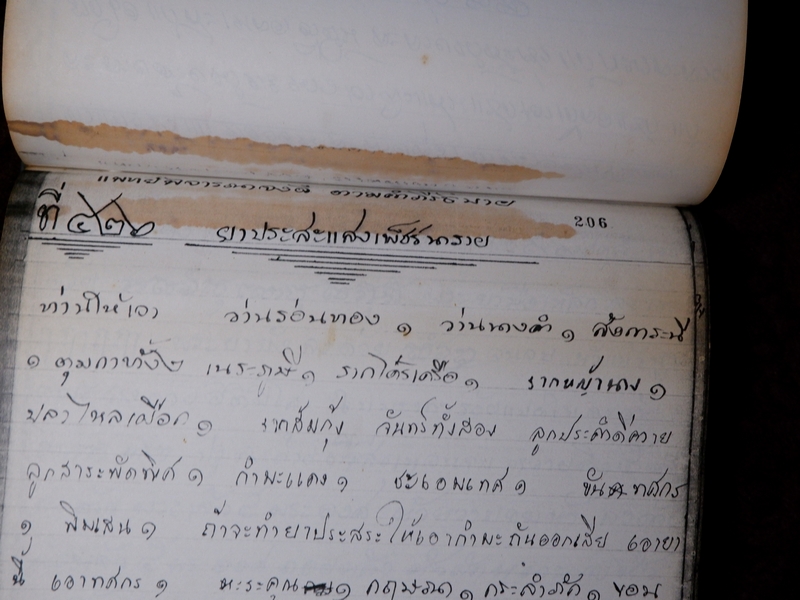 แพทย์พิจารณา ตามคำภีร์
206
ที่ ๔๒๖
ยาประสะแสงเพ็ชร์นาราย
ท่านให้เอา ว่านร่อนทอง ๑ ว่านนางคำ ๑ สังกรณี
๑ ตุมกาทั้ง๒ เนระภูษี ๑ รากไคร้เครือ ๑ รากหญ้านาง ๑
ปลาไหลเผือก ๑ รากส้มกุ้ง จันทร์ทั้งสอง ลูกประคำดีควาย
ลูกสาระพัดพิศ ๑ กำมะแดง ๑ ชะเอมเทศ ๑ ขัน ทศกร
๑ พิมเสน ๑ ถ้าจะทำยาประสระให้เอากำมะถันออกเสีย เอายา
นี้ เอาทศกร ๑ ๑ กฤษณา ๑ กระลำภัก ๑ ขอน